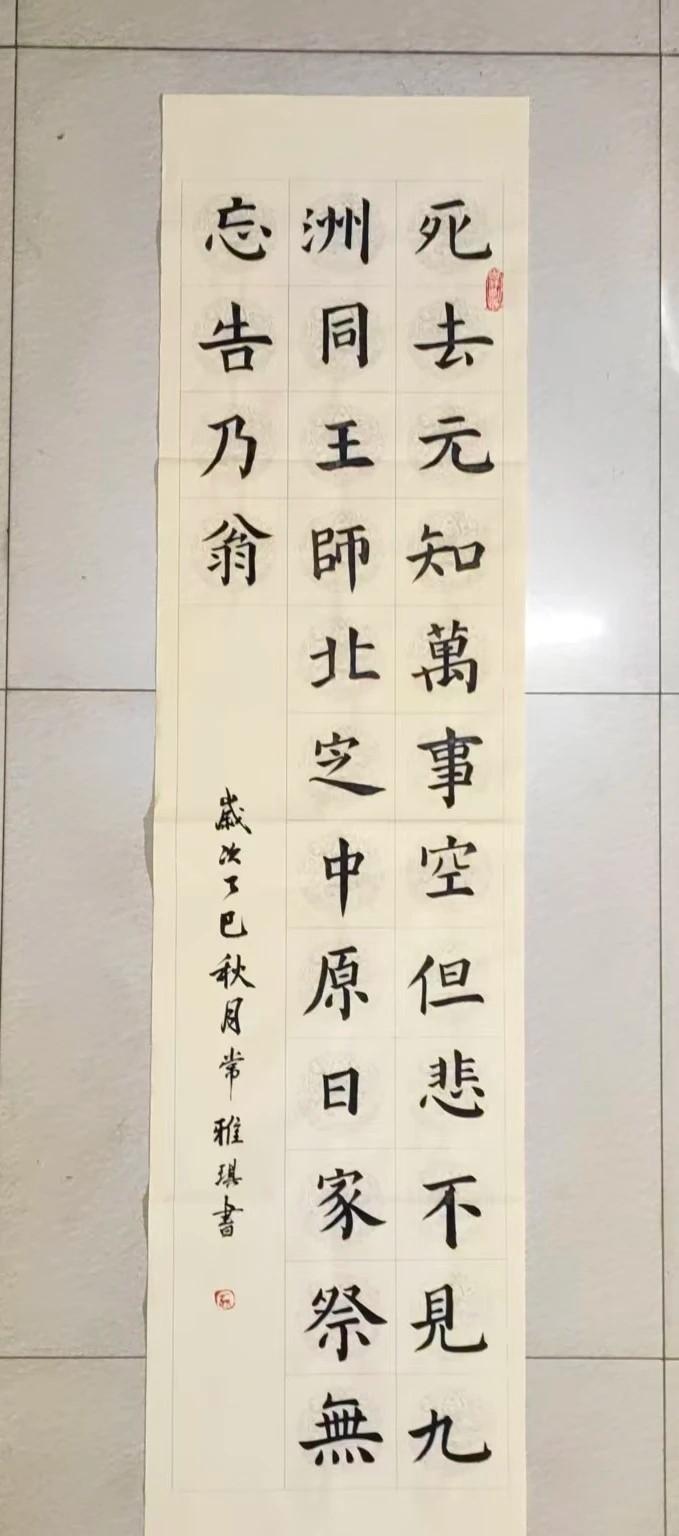 死去元知萬事空但悲不見九
洲同王師北定中原日家祭無
忘告乃翁
歲次丁巳秋月常雅琪書